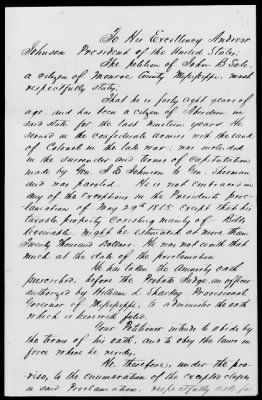 To His Excellency Andrew
Johnson President of the United States;
The petition of John B Sale,
a citizen of Monroe County Mississippi most
respectfully states;
That he is forty eight years of
age and has been a citizen of Aberdeen in
said state for the last nineteen years. He
served in the confederate armies with the rank
of Colonel in the late war; was included
in the surrender and terms of capitulation
made by Gen. J E Johnson to Gen. Sherman
and was paroled. He is not embraced in
any of the exceptions in the Presidents proc-
lamation of May 29th 1865, except that his
taxable property consisting mainly of Bills
receivable, might be estimated at more than
Twenty Thousand Dollars. He was not worth that
much at the date of the proclamation
He has taken the Amnesty oath
prescribed, before the Probate Judge, an officer
authorized by William L. Sharkey Provisional
Governor of Mississippi, to administer the oath
which is herewith filed.
Your Petitioner intends to abide by
the terms of his oath, and to obey the laws in
force where he resides.
He, therefore, under the pro-
viso, to the enumeration of the excepted classes
in said Proclamation, respectfully asks for